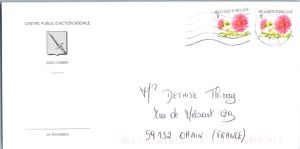 CENTRE PUBLIC D'ACTION SOCIALE
6460 CHIMAY
Le Secrétaire
BELGIQUE-BELGIË
BELGIQUE-BELGIË
Mr DETHISE Thierry
Rue de
59132 OHAIN (FRANCE)